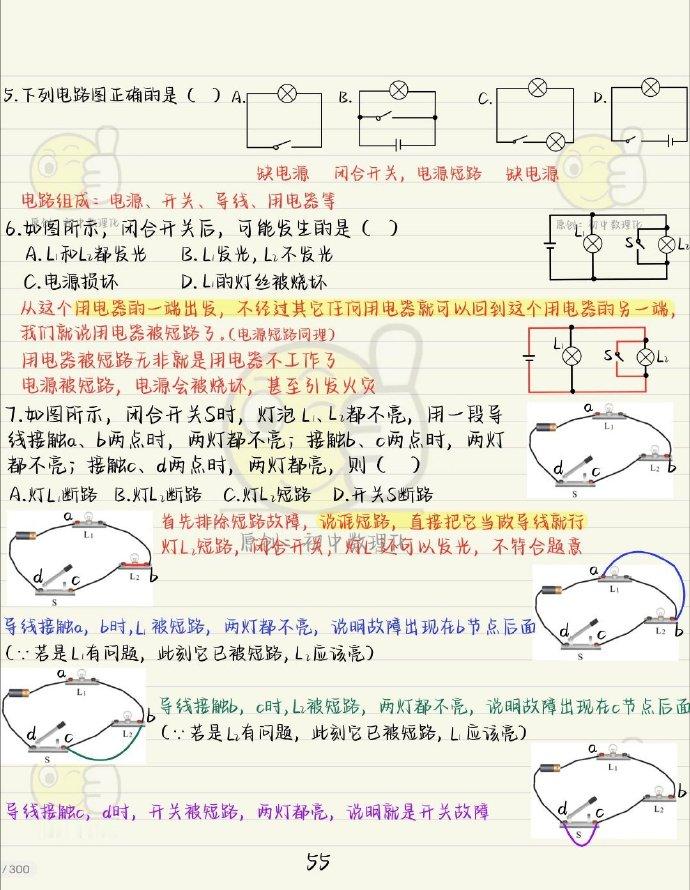 5.下列电路图正确的是（  ） A. B. C. D.
缺电源 闭合开关，电源短路 缺电源
电路组成：电源、开关、导线、用电器等
原创：初中数理化 原创：初中数理化
6.如图所示，闭合开关后，可能发生的是（  ）
A.L₁和L₂都发光 B.L₁发光，L₂不发光
C.电源损坏 D.L₁的灯丝被烧坏
L₁ S L₂
从这个用电器的一端出发，不经过其它任何用电器就可以回到这个用电器的另一端，
我们就说用电器被短路了。（电源短路同理）
用电器被短路无非就是用电器不工作了
电源被短路，电源会被烧坏，甚至引发火灾
L₁ S L₂
7.如图所示，闭合开关S时，灯泡L₁、L₂都不亮，用一段导
线接触a、b两点时，两灯都不亮；接触b、c两点时，两灯
都不亮；接触c、d两点时，两灯都亮，则（  ）
A.灯L₁断路 B.灯L₂断路 C.灯L₂短路 D.开关S断路
a L₁ b L₂ c d S
首先排除短路故障，说谁短路，直接把它当做导线就行
灯L₂短路，闭合开关，灯L₁还可以发光，不符合题意
原创：初中数理化
a L₁ b L₂ c d S
导线接触a，b时，L₁被短路，两灯都不亮，说明故障出现在b节点后面
（∵若是L₁有问题，此刻它已被短路，L₂应该亮）
a L₁ b L₂ c d S
导线接触b，c时，L₂被短路，两灯都不亮，说明故障出现在c节点后面
（∵若是L₂有问题，此刻它已被短路，L₁应该亮）
a L₁ b L₂ c d S
导线接触c，d时，开关被短路，两灯都亮，说明就是开关故障
a L₁ b L₂ c d S
55
/300